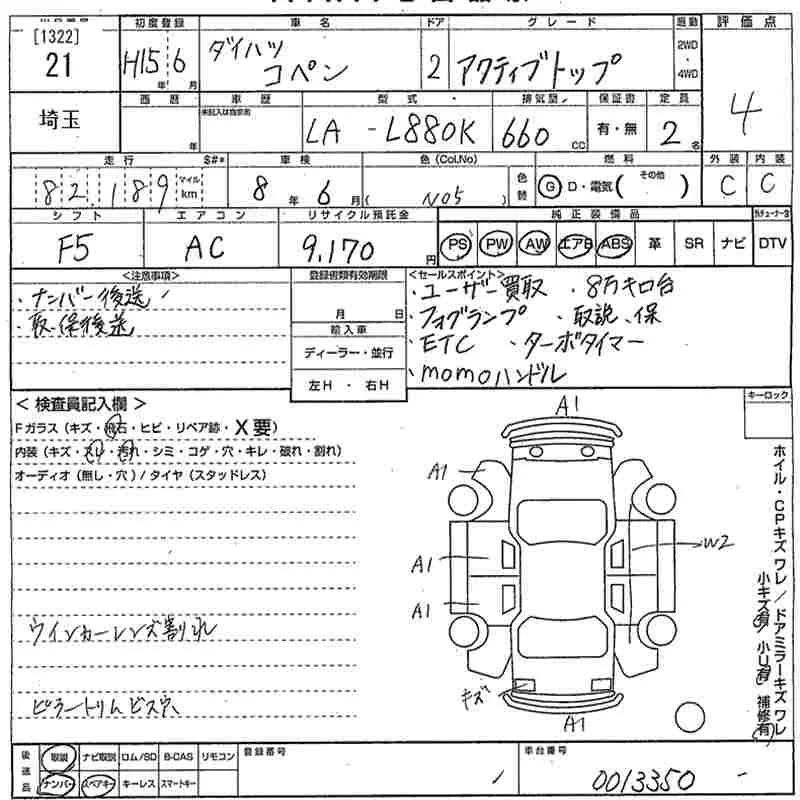 [1322]
21
埼玉
初度登録
H15年6月
車名
ダイハツ
コペン
ドア
2
グレード
アクティブトップ
駆動
2WD
・
4WD
評価点
4
西暦
年
車歴
未記入は自家用
型式
LA - L880K
排気量
660cc
保証書
有・無
定員
2名
走行
82,189
マイル
km
S#*
車検
8年6月
色(Col.No)
( N05 )
色替
燃料
G D・電気( その他 )
外装
C
内装
C
シフト
F5
エアコン
AC
リサイクル預託金
9,170円
純正装備品
PS PW AW エアB ABS 革 SR ナビ DTV
<注意事項>
・ナンバー後送
・取.保後送
登録書類有効期限
月 日
輸入車
ディーラー・並行
左H・右H
<セールスポイント>
・ユーザー買取 ・8万キロ台
・フォグランプ ・取説、保
・ETC ・ターボタイマー
・momoハンドル
<検査員記入欄>
Fガラス(キズ・飛石・ヒビ・リペア跡・X要)
内装(キズ・スレ・汚れ・シミ・コゲ・穴・キレ・破れ・割れ)
オーディオ(無し・穴)/タイヤ(スタッドレス)
ウインカーレンズ割れ
ピラートリムビス穴
キーロック
A1
A1
A1
A1
W2
キズ
A1
ホイル・CPキズ ワレ/ドアミラーキズ ワレ
小キズ有/小U有/補修有
後送品
取説 ナビ取説 ロム/SD B-CAS リモコン
ナンバー スペアキー キーレス スマートキー
登録番号
車台番号
0013350